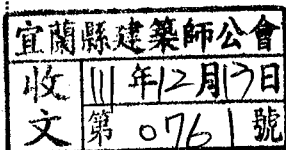 宜蘭縣建築師公會
收文
111年12月13日
第0761號